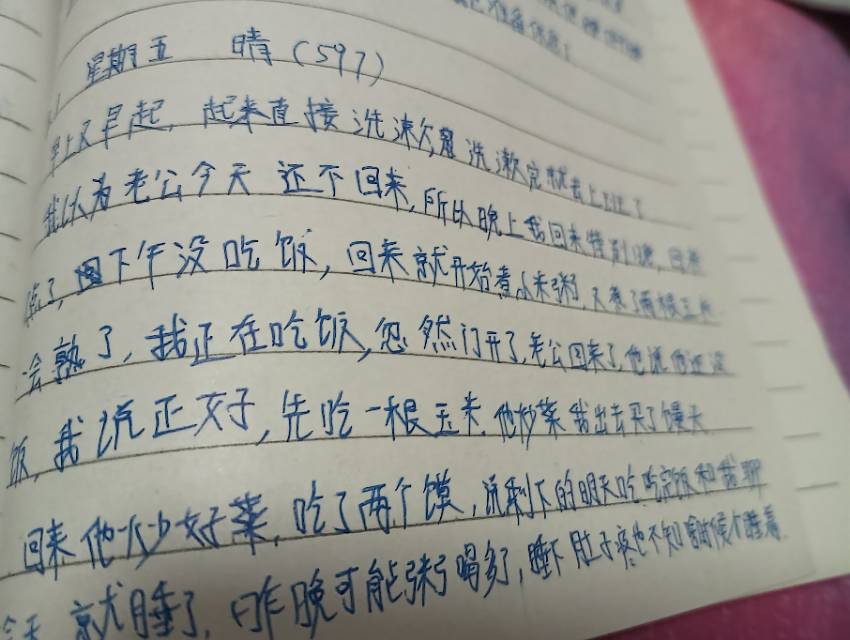 星期五 晴(597)
早上又早起,起来直接洗漱,洗漱完就去上班了
我以为老公今天还不回来,所以晚上我回来特别晚,回来
点了,下午没吃饭,回来就开始煮小米粥,又煮了两根玉米
会熟了,我正在吃饭,忽然门开了,老公回来了,他说他还没
饭,我说正好,先吃一根玉米,他炒菜我出去买了馒头
回来他炒好菜,吃了两个馍,说剩下的明天吃吃完饭和我聊
天就睡了,昨晚可能粥喝多了,睡下肚子疼也不知啥时候才睡着.